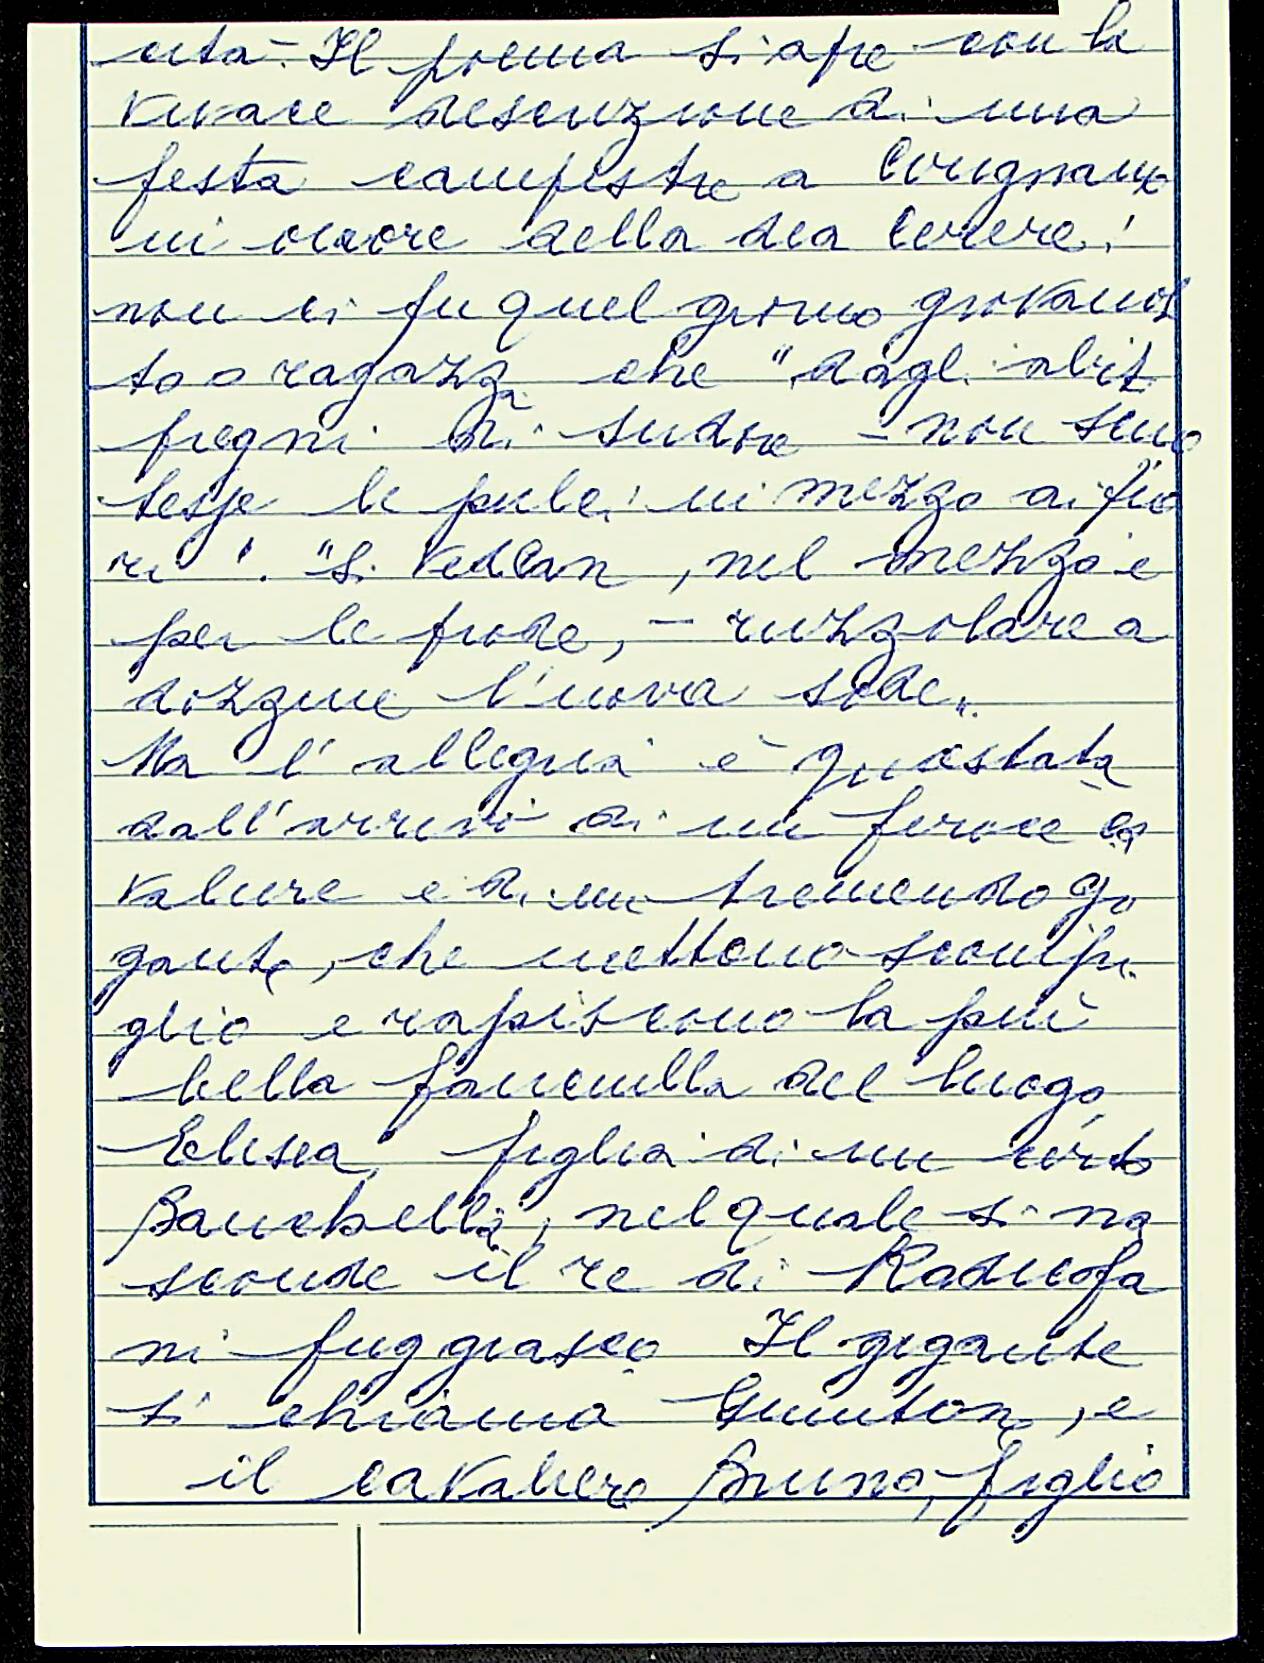 cita. Il poema si apre con la
vivace descrizione di una
festa campestre a Covignano
in onore della dea Cerere:
non ci fu quel giorno giovanot
to o ragazza che "dagli abiti
pregni di sudore - non scuo
tesse le pulci in mezzo ai fio
ri". "Si vedean, nel mezzo e
per le prode, - ruzzolare a
dozzine l'uova sode".
Ma l'allegria è guastata
dall'arrivo di un feroce ca
valiere e di un tremendo gi
gante, che mettono scompi
glio e rapiscono la più
bella fanciulla del luogo,
Elisea, figlia di un certo
nel quale si na
sconde il re di Radicofa
ni fuggiasco. Il gigante
si chiama , e
il cavaliere Bruno, figlio